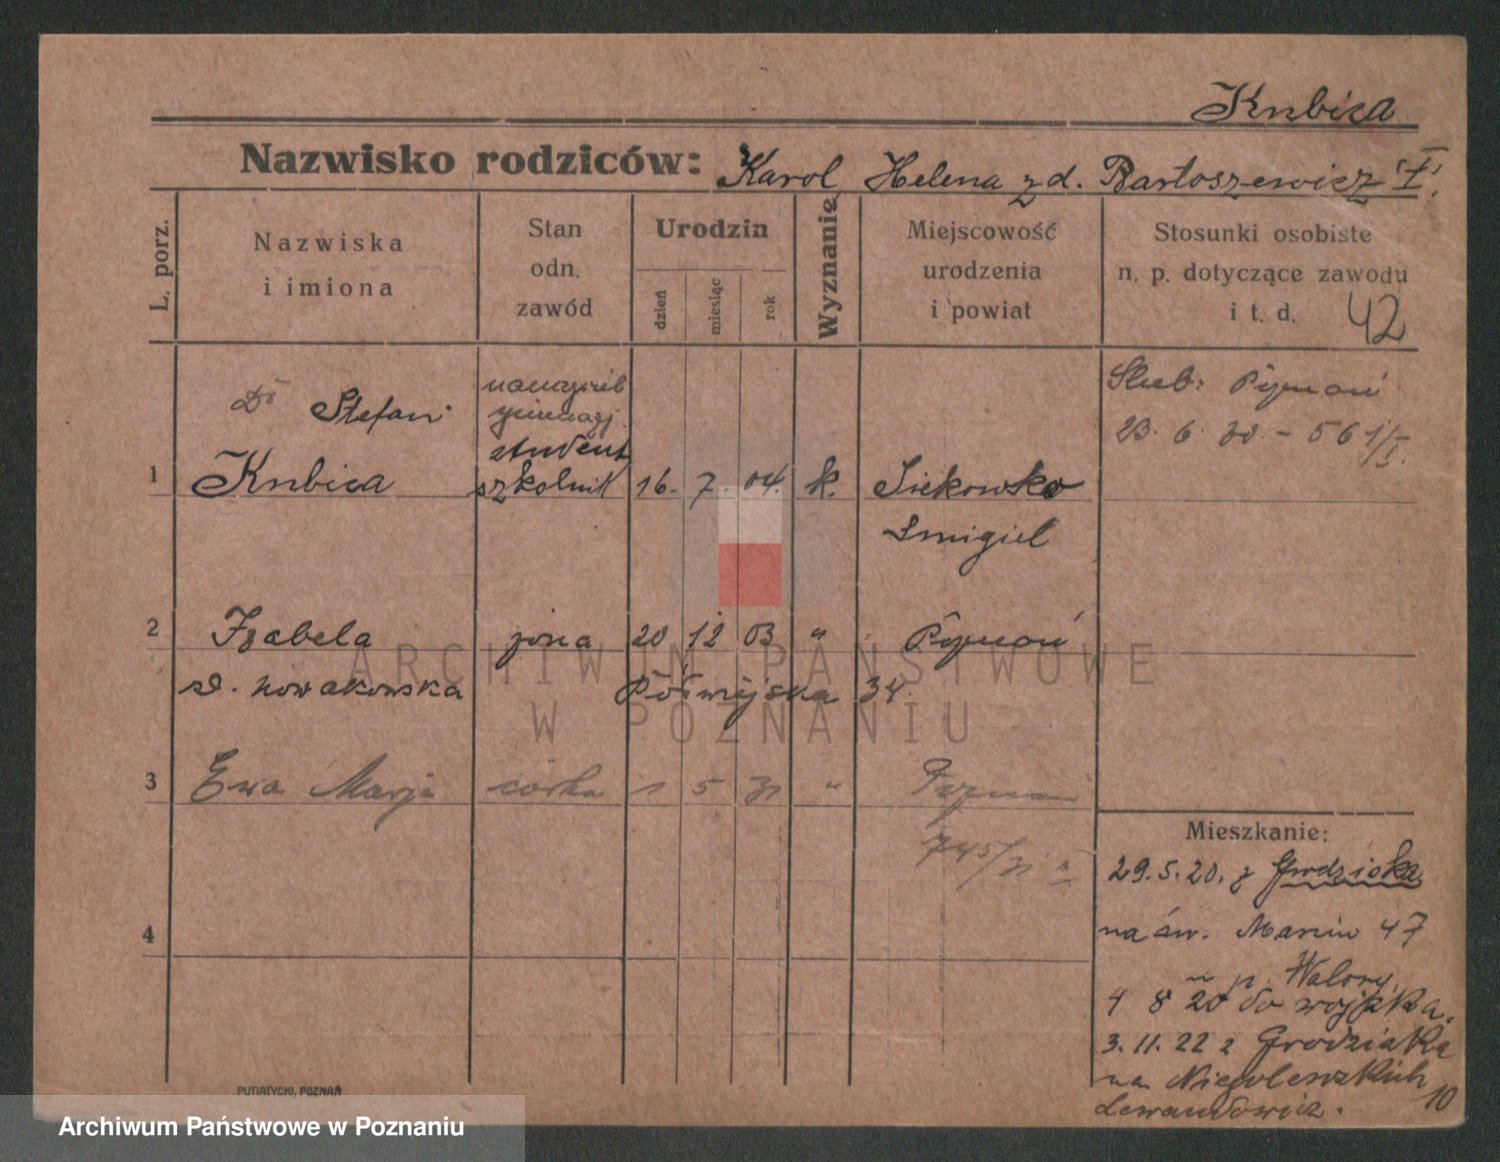 Kubica
Nazwisko rodziców: Karol, Helena z d. Bartoszewicz 'I'.
L. porz.
Nazwiska
i imiona
Stan
odn.
zawód
Urodzin
dzień
miesiąc
rok
Wyznanie
Miejscowość
urodzenia
i powiat
Stosunki osobiste
n. p. dotyczące zawodu
i t. d. 42
Dr Stefan
nauczyciel
gimnazj.
student
1 Kubica szkolnik 16. 7. 04. k. Siekowsko
Smigiel
Ślub: Poznań
23. 6. 30 – 561/I.
2 Izabela żona 20 12 03 " Poznań
d. Nowakowska Półwiejska 34
3 Ewa Marja córka 1 5 31 " Poznań
745/31
Mieszkanie:
29.5.20. z Grodziska
na św. Marcin 47
u p. Walory
4 8 20 do wojska.
3. 11. 22 z Grodziska
na Niegolewskich 10
Lewandowicz.
4
PUTIATYCKI, POZNAŃ
ARCHIWUM PAŃSTWOWE
W POZNANIU
Archiwum Państwowe w Poznaniu